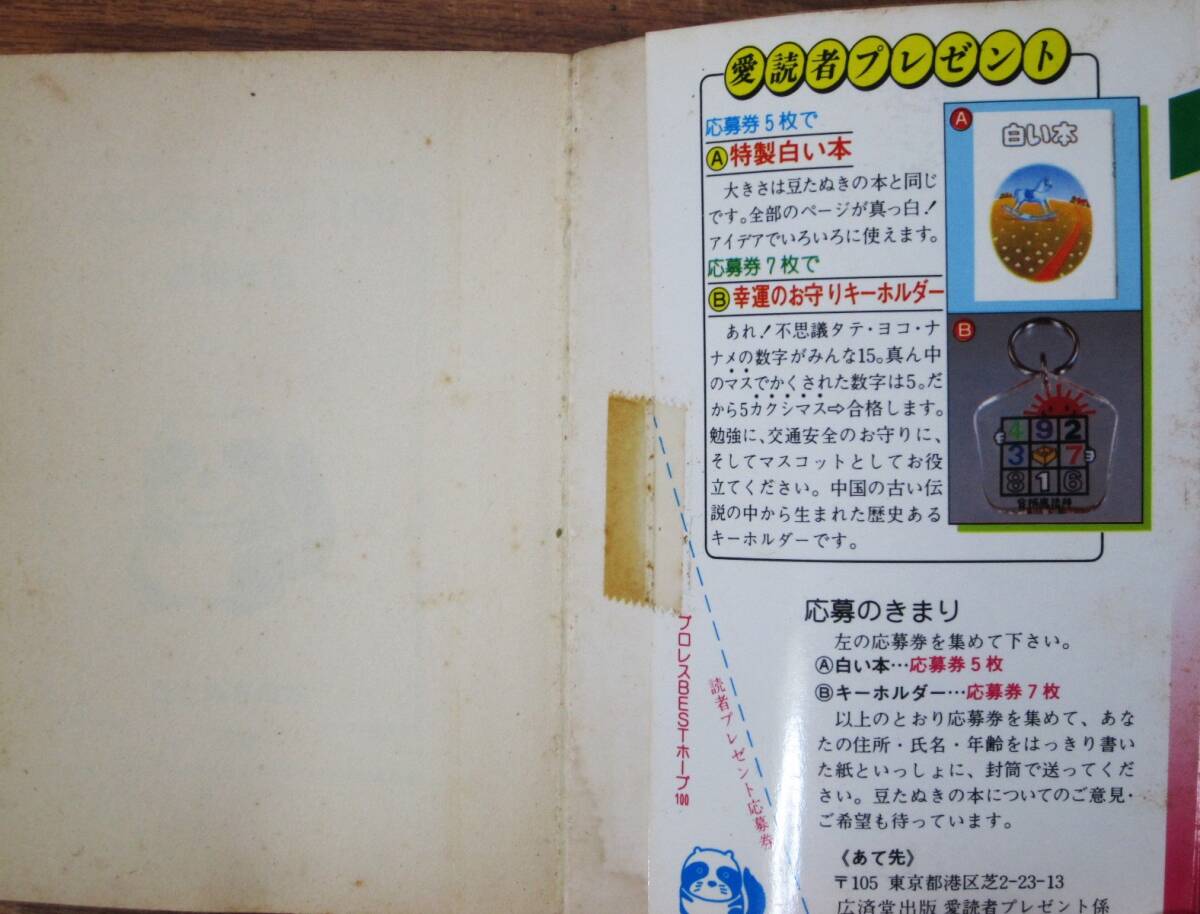 愛読者プレゼント
応募券5枚で
Ⓐ特製白い本
大きさは豆たぬきの本と同じ
です。全部のページが真っ白!
アイデアでいろいろに使えます。
応募券7枚で
Ⓑ幸運のお守りキーホルダー
あれ!不思議タテ・ヨコ・ナ
ナメの数字がみんな15。真ん中
のマスでかくされた数字は5。だ
から5カクシマス⇨合格します。
勉強に、交通安全のお守りに、
そしてマスコットとしてお役
立てください。中国の古い伝
説の中から生まれた歴史ある
キーホルダーです。
A
白い本
B
4 9 2
3 7
8 1 6
応募のきまり
左の応募券を集めて下さい。
Ⓐ白い本…応募券5枚
Ⓑキーホルダー…応募券7枚
以上のとおり応募券を集めて、あな
たの住所・氏名・年齢をはっきり書い
た紙といっしょに、封筒で送ってくだ
さい。豆たぬきの本についてのご意見・
ご希望も待っています。
《あて先》
〒105 東京都港区芝2-23-13
広済堂出版 愛読者プレゼント係
プロレスBESTホープ100
読者プレゼント応募券